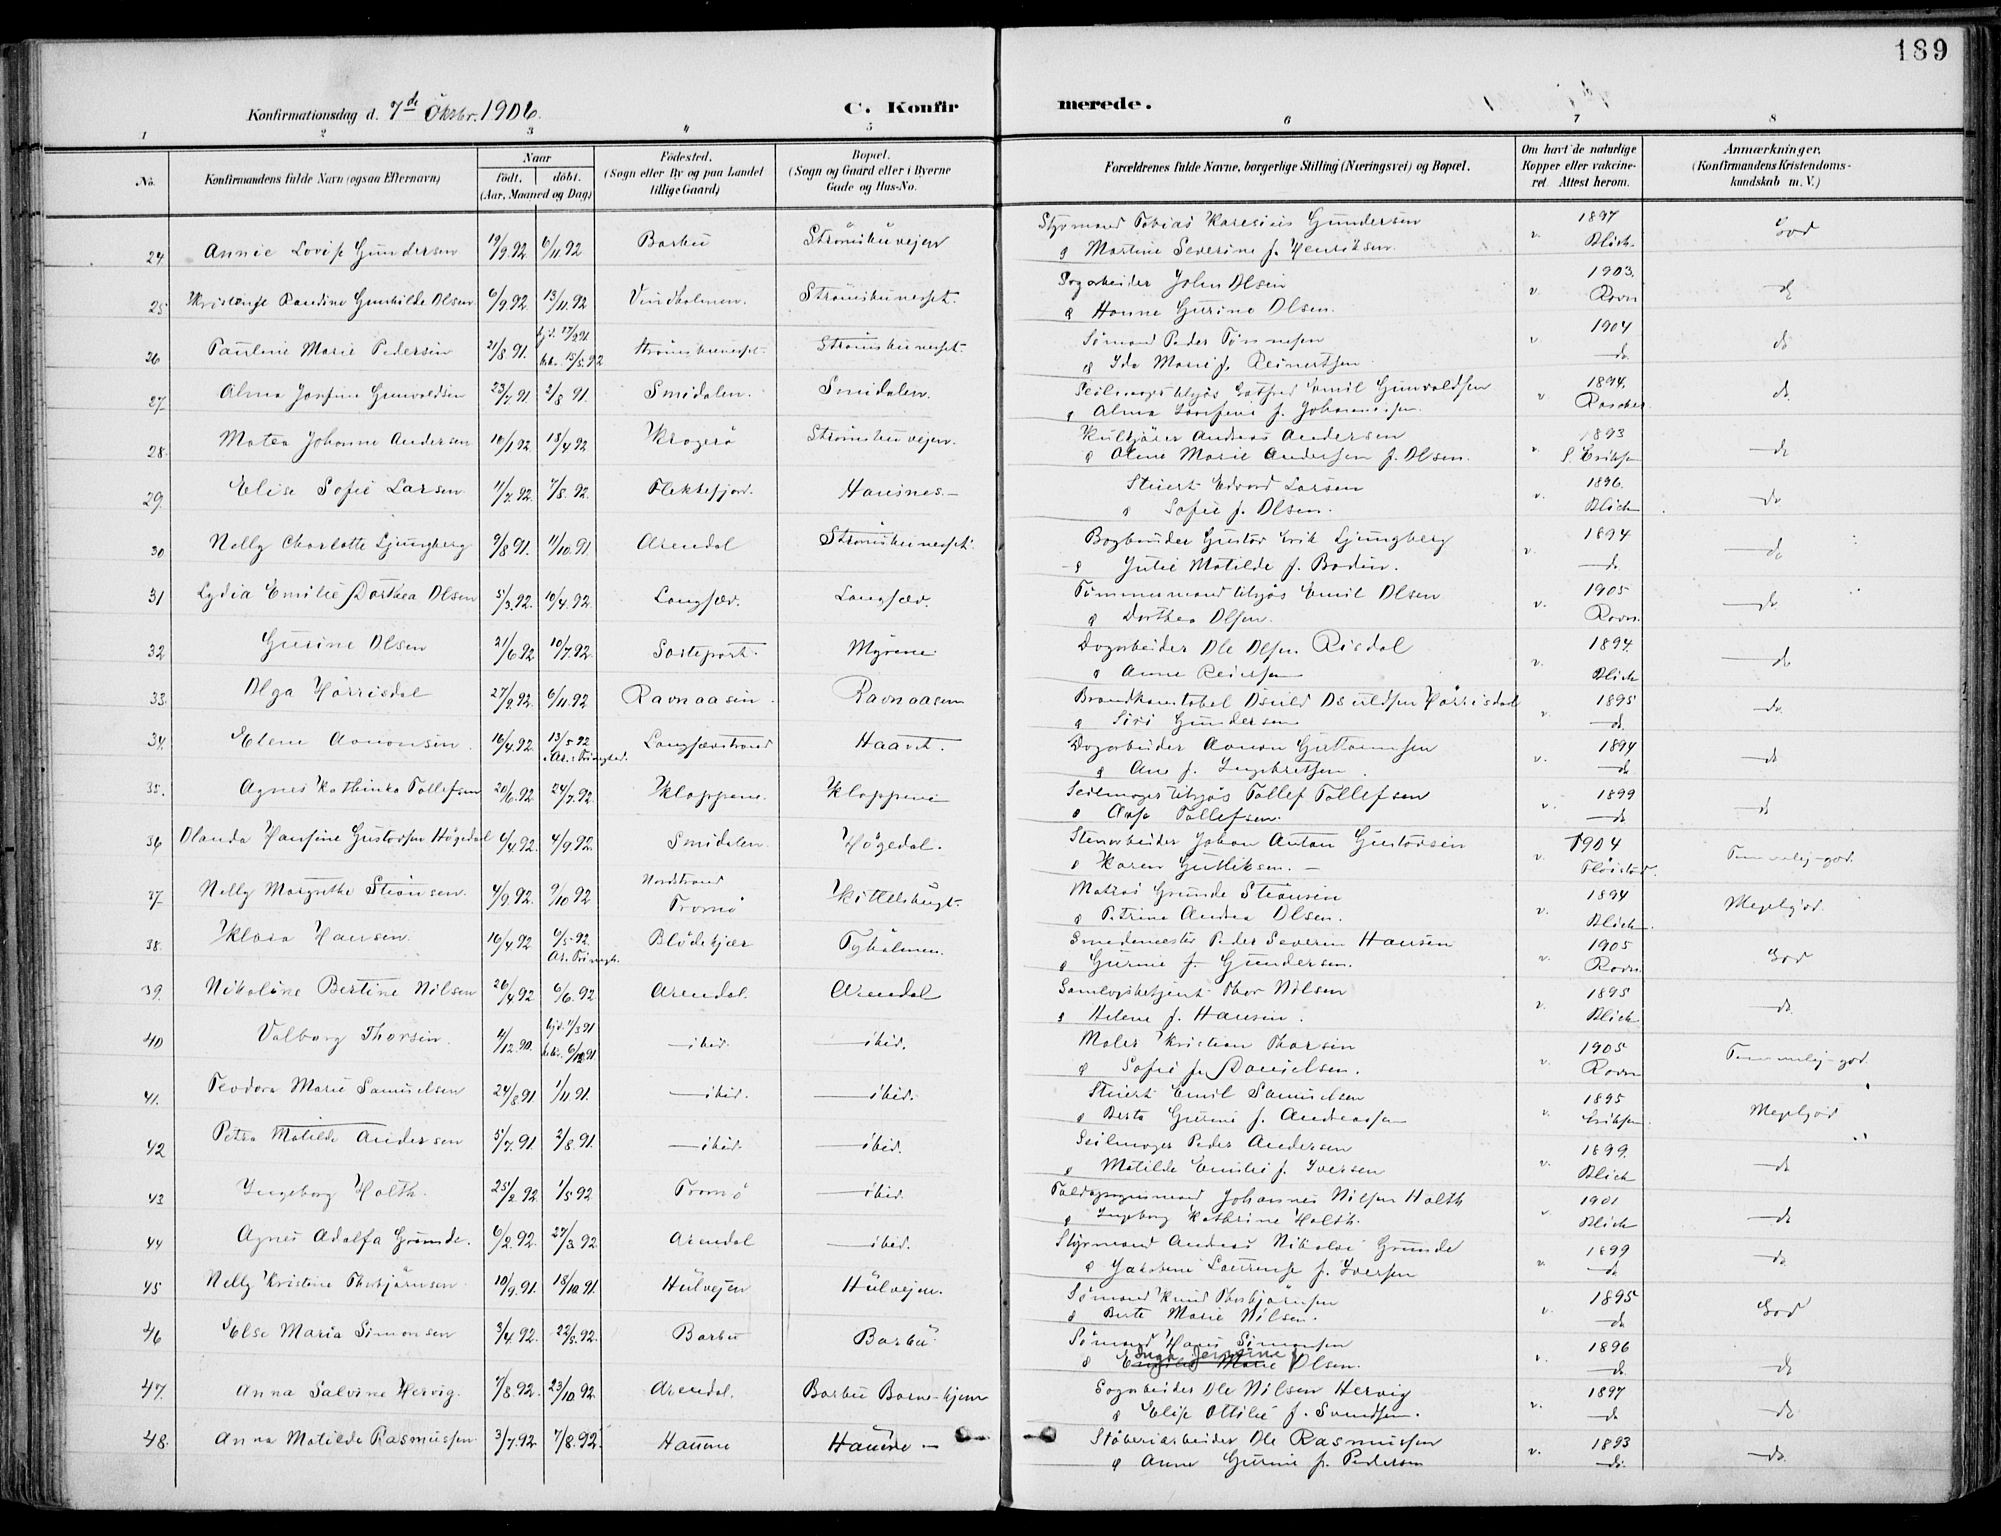 189
Konfirmationsdag d. 7de Oktbr. 1906.
C. Konfirmerede.
1 2 3 4 5 6 7 8
No. Konfirmandens fulde Navn (ogsaa Efternavn) Naar født. døbt. (Aar, Maaned og Dag) Fødested. (Sogn eller By og paa Landet tillige Gaard) Bopæl. (Sogn og Gaard eller i Byerne Gade og Hus-No. Forældrenes fulde Navne, borgerlige Stilling (Næringsvei) og Bopæl. Om havt de naturlige Kopper eller vakcineret. Attest herom. Anmærkninger. (Konfirmandens Kristendomskundskab m. V.)
24. Annie Lovise Gundersen 19/9.92. 6/11.92 Barbu Strømsbuvejen Styrmand Tobias Gundersen v. 1897 God
& Martine Severine f. Henriksen. Blich.
25. Randine Gunhilde Olsen 6/9.92. 13/11.92 Vindholmen. Strømsbunesset. John Olsen v. 1903. do
& Hanne Gurine Olsen. Rovn
26 Pauline Marie Pedersen 21/8.91. Strømsbunesset. Strømsbunesset. Sømand Peder Tønnesen v 1904 do
& Ida Marie f. Reinertsen do
27. Alma Josefine Gunvaldsen 23/7.91. 2/8.91. Smidalen. Smidalen. Emil Gunvaldsen v 1894. do
& Alma Josefine f. Johannessen. Rascher.
28. Matea Johanne Andersen 10/1.92 18/4.92 Kragerø Strømsbuvejen. Andreas Andersen v. 1893 do
& Olene Marie Andersen f. Olsen. S. Eriksen
29. Elise Sofie Larsen 11/7.92. 7/8.92. Flekkefjord. Hausnes. Stuert Edvard Larsen v. 1896. do
& Sofie f. Olsen. Blich
30. Nelly Charlotte Ljungberg 9/8.91. 11/10.91 Arendal Strømsbunesset. Bogbinder Gustav Erik Ljungberg v. 1894 do
& Julie Matilde f. Bodin. do
31 Lydia Emilie Dorthea Olsen 5/3.92. 10/4.92. Langsæv. Langsæv. Tømmermand Emil Olsen v. 1905 do
& Dorthea Olsen. Rovn.
32. Gurine Olsen 21/6.92. 10/7.92. Myrene Ole Olsen Risdal v. 1894. do
& Anne Reiersen Blich
33. Olga Hørrisdal 27/9.92. 6/11.92 Ravnaasen Ravnaasen Brandkonstabel Osuld Osuldsen Hørrisdal v. 1895 do.
& Siri Gundersen do
34. Elene Aanonsen. 16/4.92. 13/5.92 Langsævstrand Dogarbeider Aanon v. 1894 do
& Ane f. Ingebretsen. do
35. Agnes Kathinka Tollefsen 20/6.92. 24/7.92. Kloppene. Kloppene Tollef Tollefsen v. 1899 do
& Tollefsen. do
36 Olanda Hansine Gustavsen Høgedal 6/4.92. 4/9.92. Smidalen. Høgedal. Stenarbeider Johan Anton Gustavsen v. 1904 Temmelig god.
& Karen Gulliksen. Fløistad.
37. Nelly Margrethe Steensen. 4/9.92. 9/10.92 Nordstrand Tromø Kittelsbugt. Matros v. 1894 Megetgod.
& Petrine Andrea Olsen. Blich.
38. Klara Hansen. 16/4.92 6/5.92. Blødekjær Tyholmen. Smedemester Peder Severin Hansen v. 1905 God
& Gurine f. Gundersen. Rovn.
39. Nikoline Bertine Nilsen 26/4.92 6/6.92 Arendal. Arendal Thor Nilsen v. 1895 do
& Helene f. Hansen. Blich
40 Valborg Thorsen. 4/12.90. ibid. ibid. Maler Kristian Thorsen v. 1905 Temmelig god
& Sofie f. Danielsen. Rovn
41. Teodora Marie Samuelsen 24/8.91. 1/11.91. ibid. ibid. Stuert Emil Samuelsen v. 1895 Megetgod
& Berte Gurine f. Andreassen Eriksen.
42 Petra Matilde Andersen 5/7.91. 2/8.91. ibid. ibid. Seilmager Peder Andersen v. 1899. do
& Matilde Emilie f. Iversen Blich
43 Ingeborg Holth. 25/2.92 1/5.92 Tromø ibid. Johannes Nilsen Holth 1901 do
& Ingeborg Kathrine Holth. Blich
44 Agnes Adolfa Grunde. 6/2.92. 27/3.92 Arendal ibid. Styrmand Andreas Nikolai Grunde v. 1899 do
& Jakobine Laurense f. Iversen do
45 Nelly Kristine Thorbjørnsen 10/9.91. 18/10.91. Hulvejen Hulvejen. Sømand Knud Thorbjørnsen v. 1895 God
& Berte Marie Nilsen. do
46 Else Maria Simonsen 3/4.92. 22/5.92. Barbu Barbu Sømand Hans Simonsen v. 1896 do
& Inga Jensine Marie Olsen. do.
47. Anna Salvine Hervig. 7/8.92. 23/10.92. Arendal. Barbu Barnehjem Ole Nilsen Hervig v. 1897 do
& Elise Ottilie f. Svendsen. do
48. Anna Matilde Rasmussen. 3/7.92 7/8.92. Ole Rasmussen v. 1893 do.
& Anne Gurine f. Pedersen do.